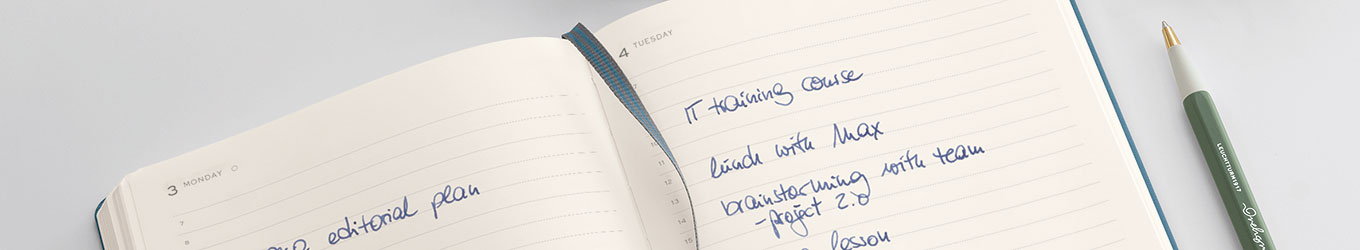 3 MONDAY
7
8
editorial plan
4 TUESDAY
IT training course
lunch with Max
brainstorming with team
- project 2.0
lesson
11
12
13
14
15
LEUCHTTURM1917